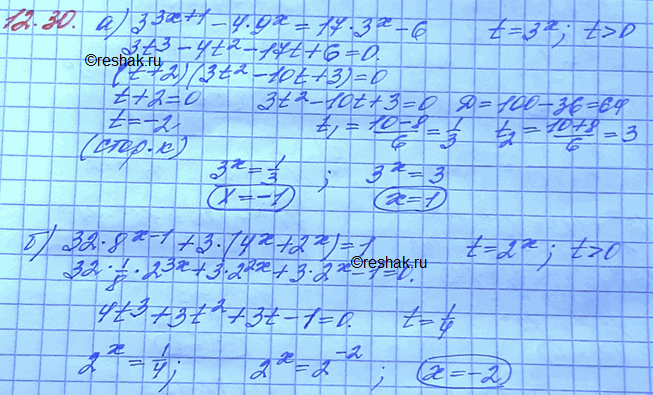 12.30. а) 3^{3x+1} - 4·9^x = 17·3^x - 6     t = 3^x; t>0
3t³ - 4t² - 17t + 6 = 0.
©reshak.ru
(t+2)(3t² - 10t + 3) = 0
t+2=0     3t² - 10t + 3 = 0   D = 100 - 36 = 64
t = -2     t₁ = (10-8)/6 = 1/3   t₂ = (10+8)/6 = 3
(стор.к)
3^x = 1/3 ;   3^x = 3
x = -1     x = 1
©reshak.ru
б) 32·8^{x-1} + 3·(4^x + 2^x) = 1     t = 2^x; t>0
32·1/8·2^{3x} + 3·2^{2x} + 3·2^x - 1 = 0.
©reshak.ru
4t³ + 3t² + 3t - 1 = 0.     t = 1/4
2^x = 1/4 ;   2^x = 2^{-2} ;   x = -2